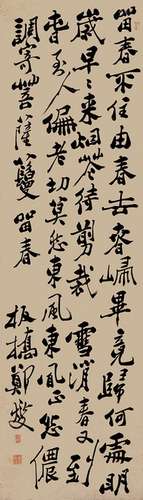 留春不住由春去春歸畢竟歸何處明
歲早些来烟花待剪裁 雪消春又到
春到人偏老切莫怨東風東風正怨儂
調寄菩薩蠻 留春
板橋鄭燮